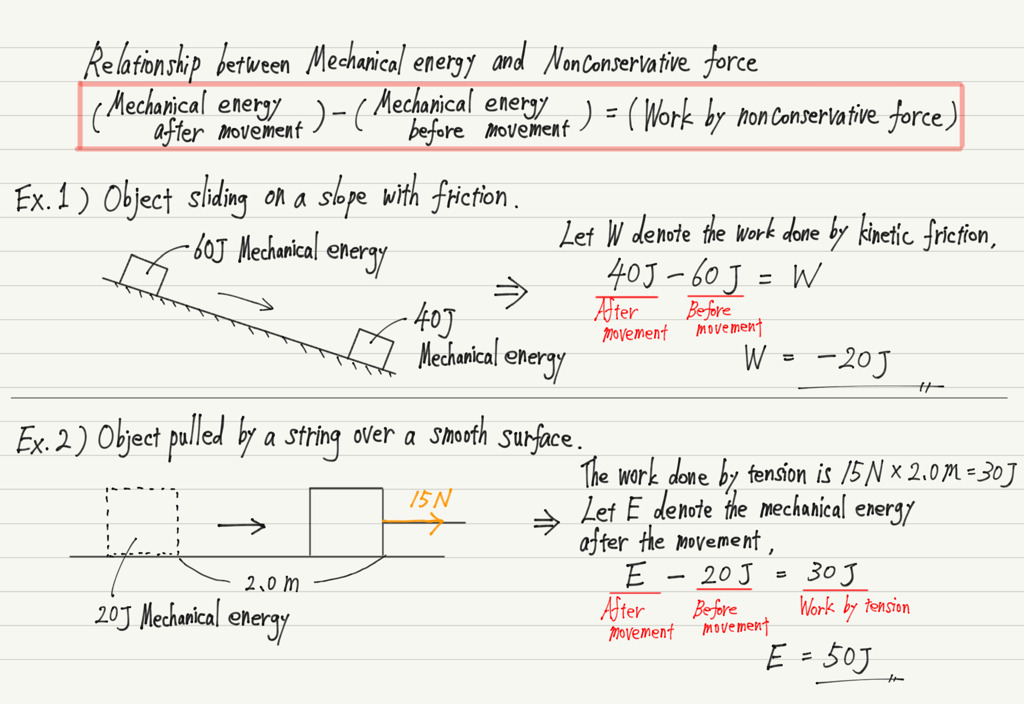 Relationship between Mechanical energy and Nonconservative force
(Mechanical energy after movement) - (Mechanical energy before movement) = (Work by nonconservative force)
Ex.1) Object sliding on a slope with friction.
60J Mechanical energy
40J
Mechanical energy
⇒
Let W denote the work done by kinetic friction,
40J - 60J = W
After movement
Before movement
W = -20J
Ex.2) Object pulled by a string over a smooth surface.
15N
2.0m
20J Mechanical energy
⇒
The work done by tension is 15N × 2.0m = 30J
Let E denote the mechanical energy
after the movement,
E - 20J = 30J
After movement
Before movement
Work by tension
E = 50J